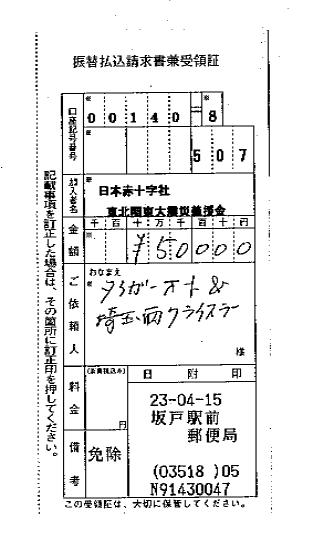 振替払込請求書兼受領証
口座記号番号
※
00140
※
8
※
507
加入者名
※
日本赤十字社
東北関東大震災義援金
金額
千百十万千百十円
※
¥50000
ご依頼人
おなまえ
※
タイガーオート&
埼玉西クライスラー
様
料金
(消費税込み)
円
備考
免除
日附印
23-04-15
坂戸駅前
郵便局
(03518 )05
N91430047
記載事項を訂正した場合は、その箇所に訂正印を押してください。
この受領証は、大切に保管してください。